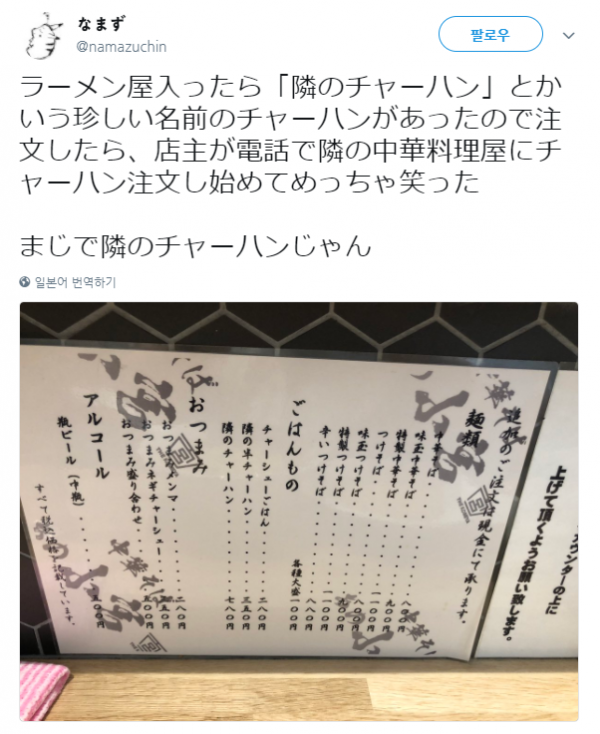 なまず
@namazuchin
팔로우
ラーメン屋入ったら「隣のチャーハン」とか
いう珍しい名前のチャーハンがあったので注
文したら、店主が電話で隣の中華料理屋にチ
ャーハン注文し始めてめっちゃ笑った
まじで隣のチャーハンじゃん
일본어 번역하기
ウンターの上に
上げて頂くようお願い致します。
追加のご注文は現金にて承ります。
麺類
中華そば
味玉中華そば
特製中華そば
つけそば
味玉つけそば
特製つけそば
辛いつけそば
各種大盛 一〇〇円
ごはんもの
チャーシューごはん 二八〇円
隣の半チャーハン 三五〇円
隣のチャーハン 七八〇円
おつまみ
おつまみメンマ 二八〇円
おつまみネギチャーシュー 三五〇円
おつまみ盛り合わせ 五〇〇円
アルコール
瓶ビール（中瓶） 五〇〇円
すべて税込価格